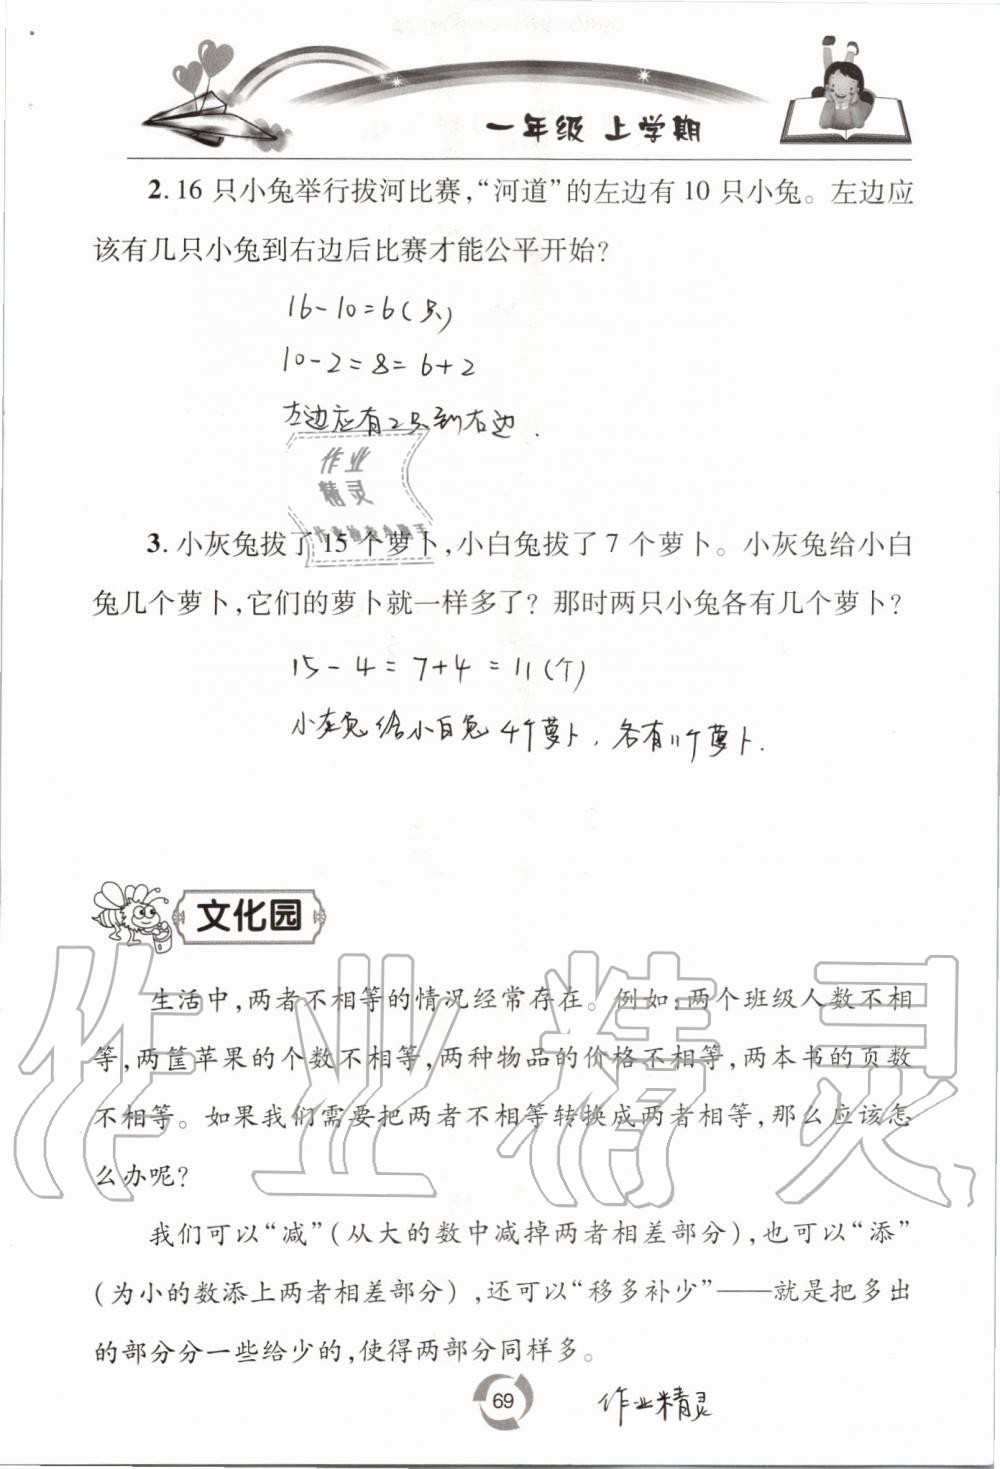 一年级 上学期
2. 16 只小兔举行拔河比赛，“河道”的左边有 10 只小兔。左边应
该有几只小兔到右边后比赛才能公平开始？
16-10=6(只)
10-2=8=6+2
左边应有2只到右边.
作业
精灵
作业检查小助手
3. 小灰兔拔了 15 个萝卜，小白兔拔了 7 个萝卜。小灰兔给小白
兔几个萝卜，它们的萝卜就一样多了？那时两只小兔各有几个萝卜？
15-4=7+4=11(个)
小灰兔给小白兔4个萝卜，各有11个萝卜.
文化园
生活中，两者不相等的情况经常存在。例如：两个班级人数不相
等，两筐苹果的个数不相等，两种物品的价格不相等，两本书的页数
不相等。如果我们需要把两者不相等转换成两者相等，那么应该怎
么办呢？
我们可以“减”（从大的数中减掉两者相差部分），也可以“添”
（为小的数添上两者相差部分），还可以“移多补少”——就是把多出
的部分分一些给少的，使得两部分同样多。
作业精灵
69
作业精灵